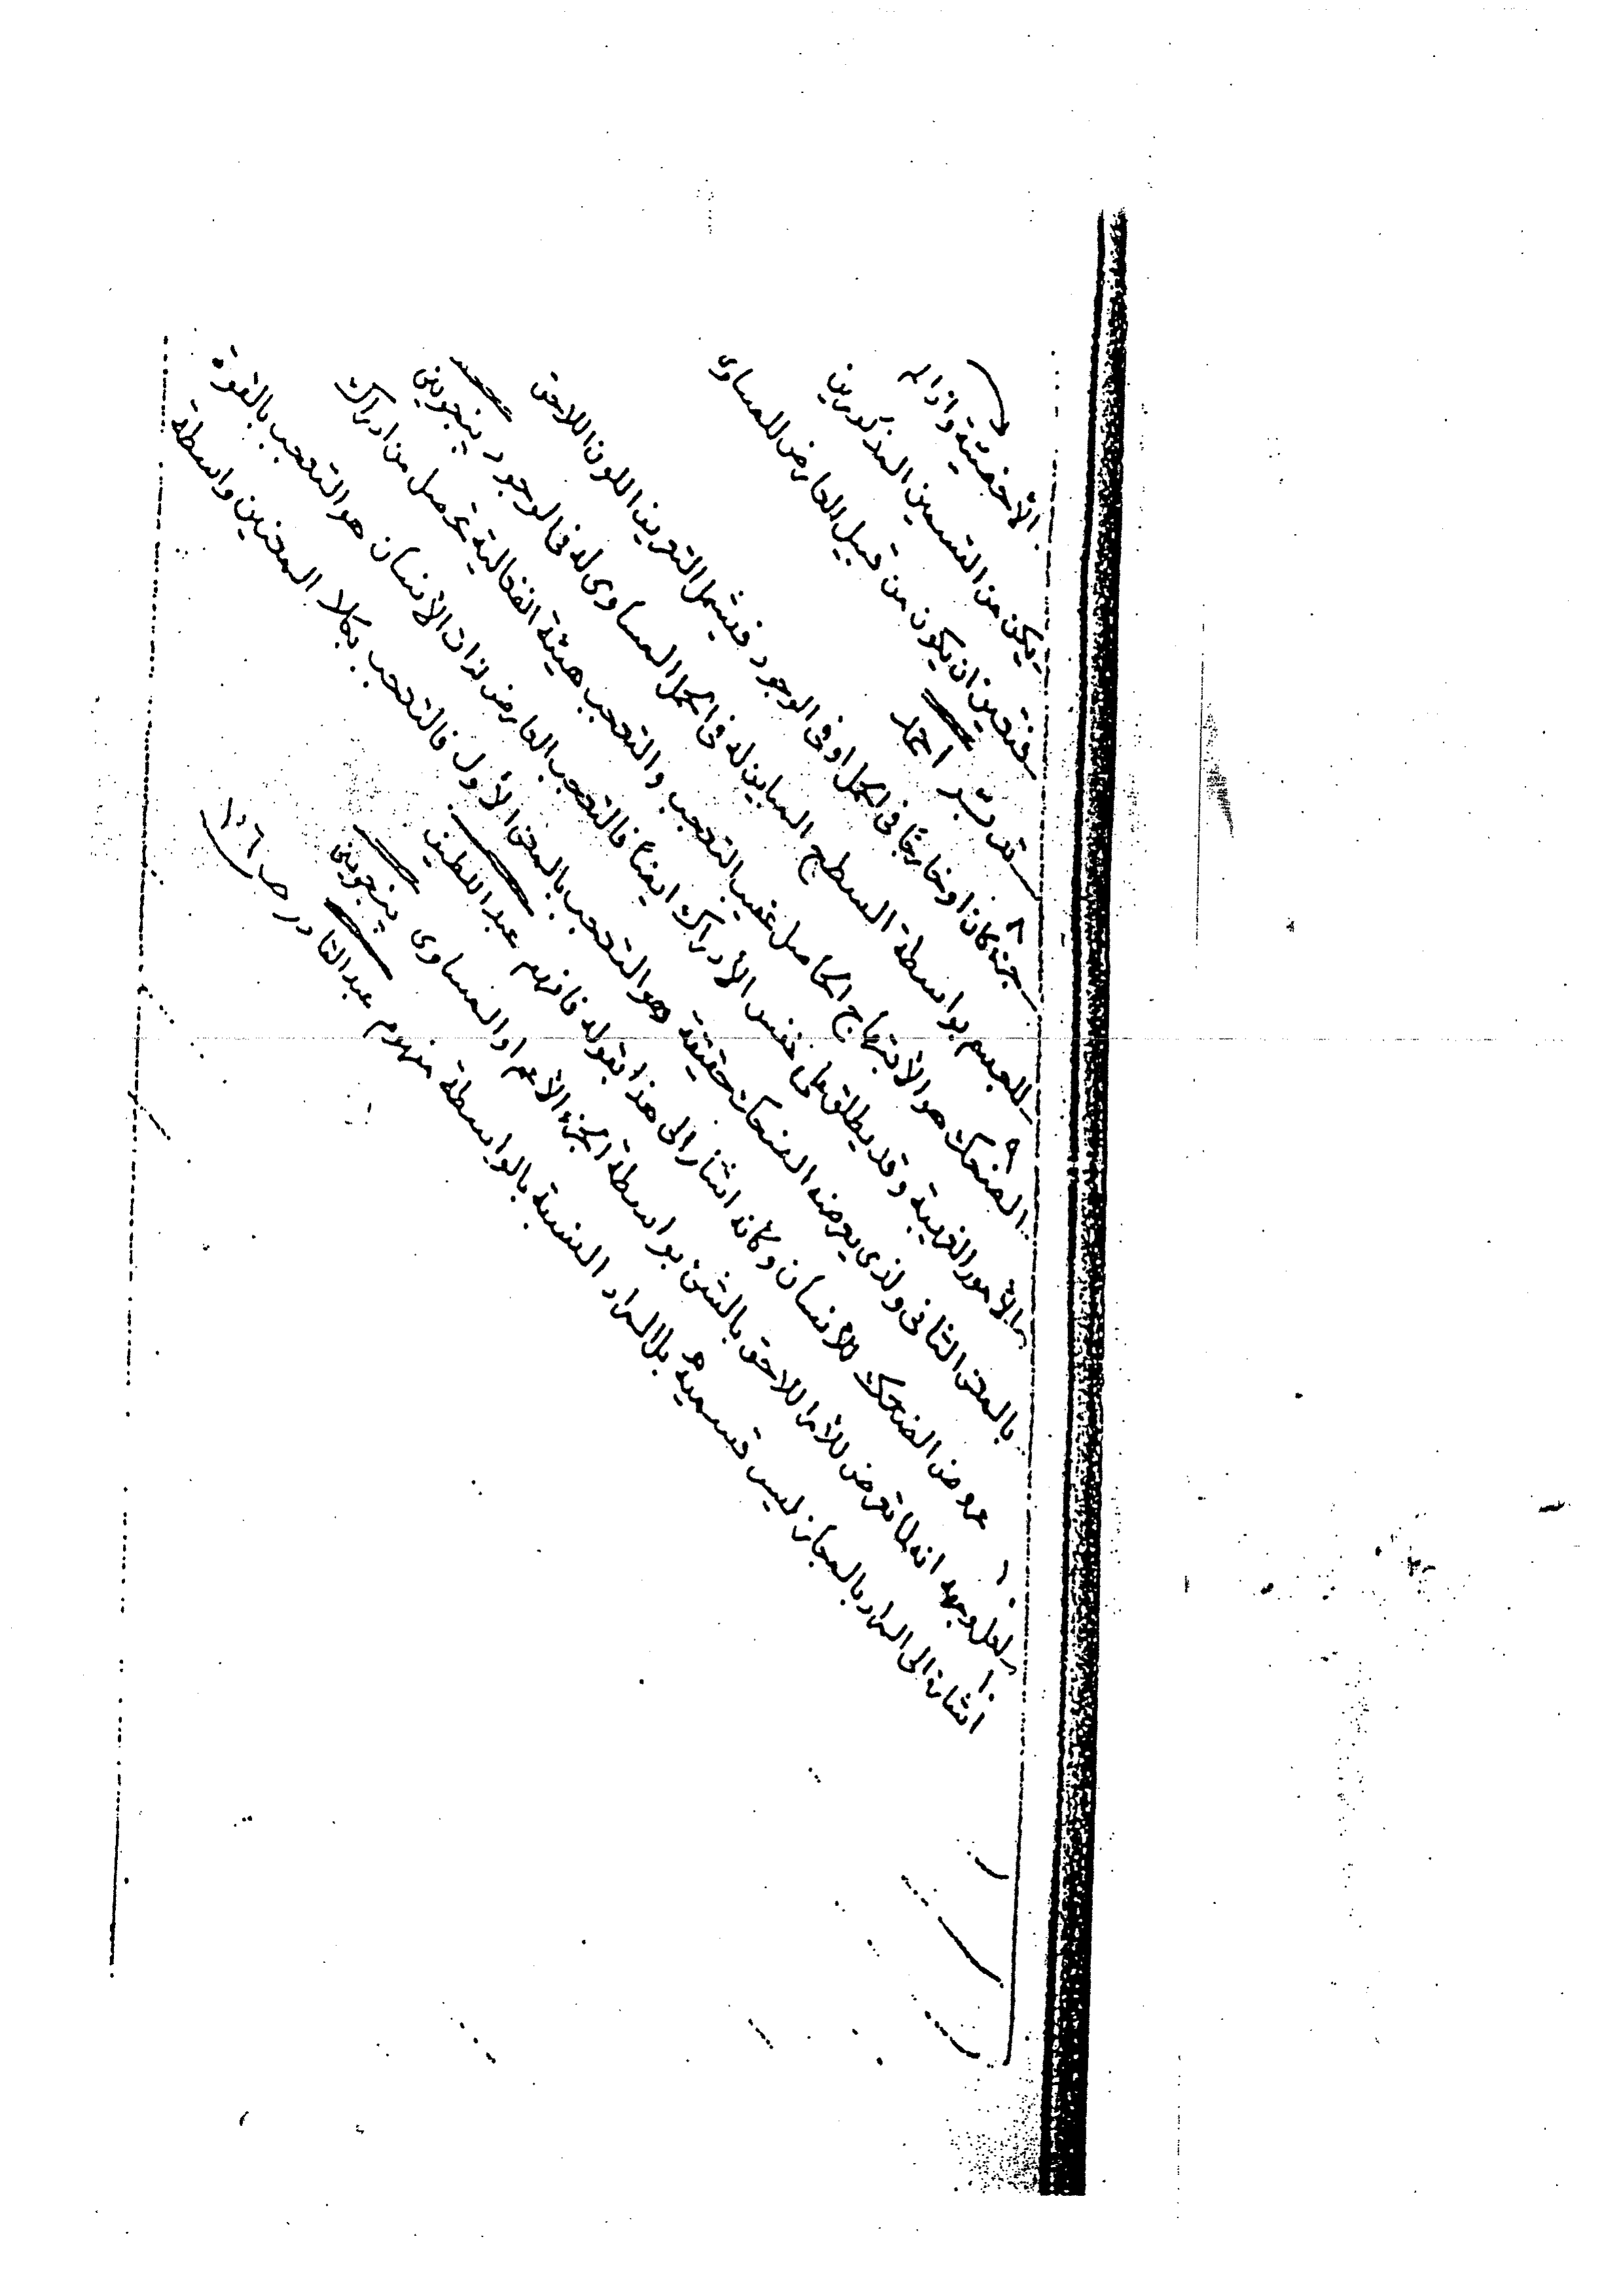 الأخصية واذا لم
يكن من القسمين المذكورين
فتعين ان يكون من قبيل العارض للمساوى
تدبر احمد
٨
جزء كان او خارجًا فى الحمل او فى الوجود فيشمل التعريف اللون اللاحق
للجسم بواسطة السطح المباين له فى الحمل المساوى له فى الوجود ينجوينى
٩
الضحك هو الأبتهاج الحاصل عقيب التعجب والتعجب هيئة انفعالية تحصل من ادراك
الأمور الغريبة وقد يطلق على نفس الأدراك ايضًا فالتعجب العارض لذات الأنسان هو التعجب بالقوة
بالمعنى الثانى والذى يعرضه الضحك حقيقة هو التعجب بالمعنى الأول فالتعجب بكلا المعنيين واسطة
عروض الضحك للأنسان وكانه اشار الى هذا بقوله فافهم عبد اللطيف
١٠
لعل وجهه انه لم يتعرض للأمر اللاحق بالشئ بواسطة الجزء الأعم او المساوى ينجوينى
١٠
اشارة الى المراد بالمجاز ليس قسميه بل المراد النسبة بالواسطة مفهوم عبد القادر ص ١٠٦